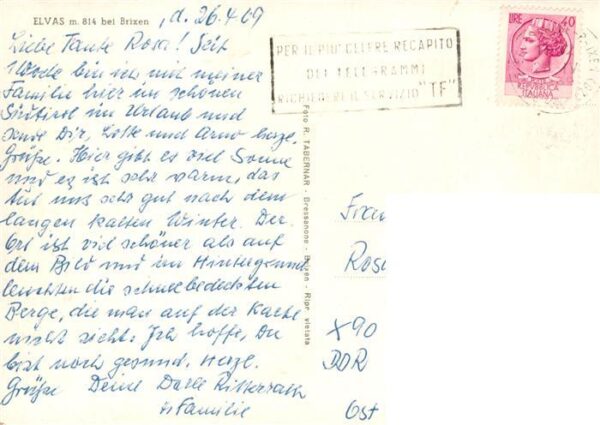 ELVAS m. 814 bei Brixen
, d. 26.4.69
Liebe Tante Rosa! Seit
1 Woche bin ich mit meiner
Familie hier im schönen
Südtirol im Urlaub und
sende Dir, Lotte und Arno herzl.
Grüße. Hier gibt es viel Sonne
und es ist sehr warm, das
tut uns sehr gut nach dem
langen kalten Winter. Der
Ort ist viel schöner als auf
dem Bild und im Hintergrund
leuchten die schneebedeckten
Berge, die man auf der Karte
nicht sieht. Ich hoffe, Du
bist noch gesund. Herzl.
Grüße Deine
u Familie
PER IL PIU' CELERE RECAPITO
DEI TELEGRAMMI
RICHIEDERE IL SERVIZIO "TF"
LIRE 40
REPVBBLICA
ITALIANA
Foto R. TABERNAR - Bressanone - Brixen - Ripr. vietata
Frau
Rosa
X90
DDR
Ost